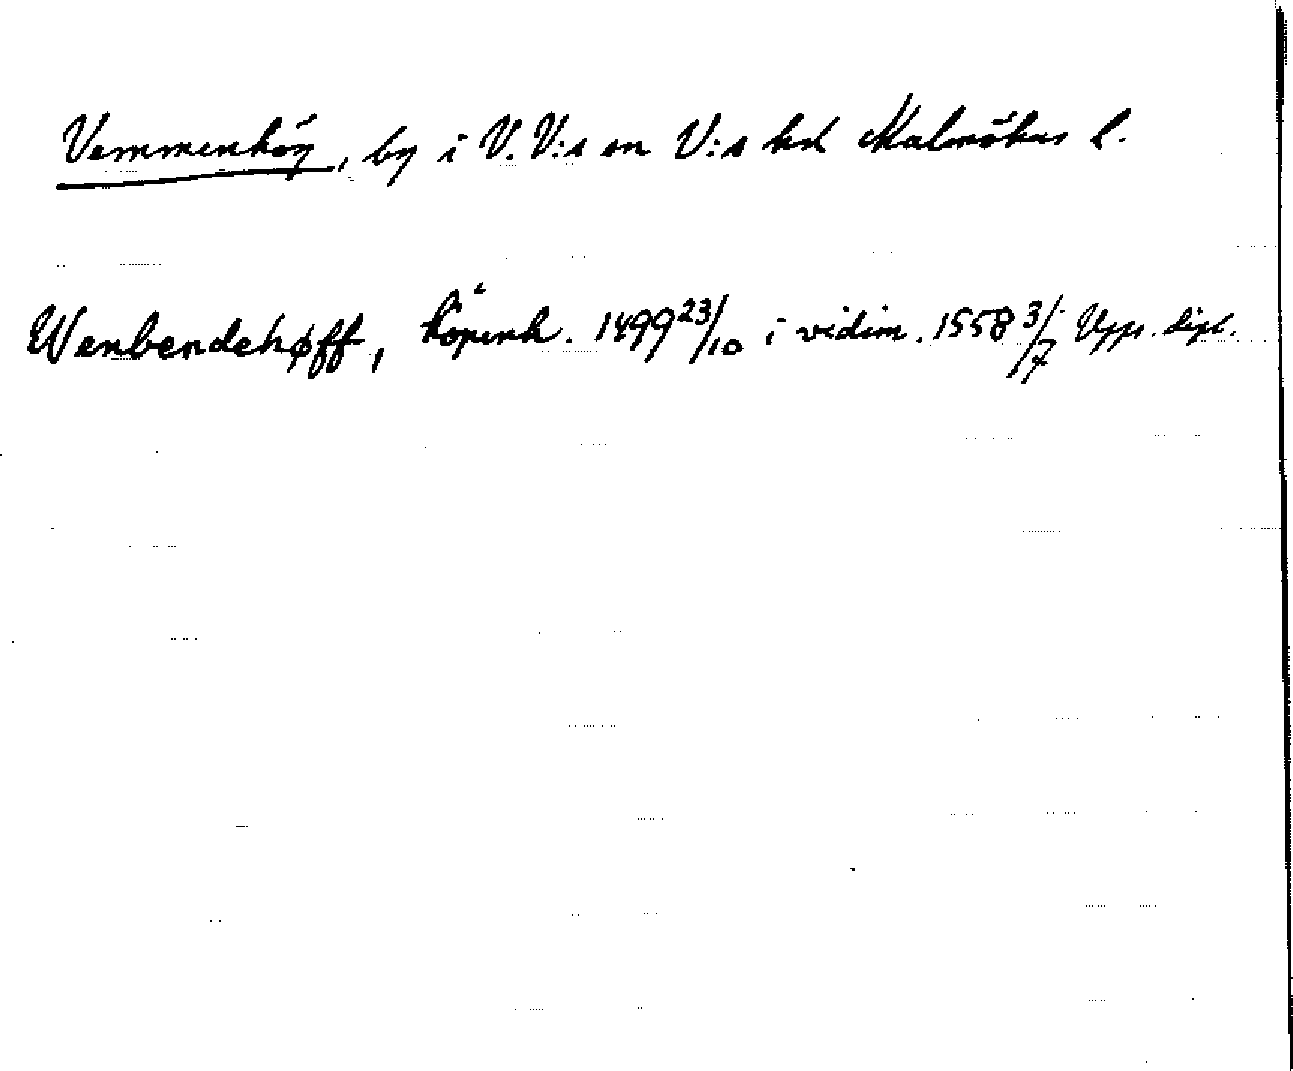 Vemmenhög, by i V. V:s sn V:s hd Malmöhus l.
Wenbendehøff, Köpenh. 1499 23/10 i vidim. 1558 3/7 Upps. dipl.